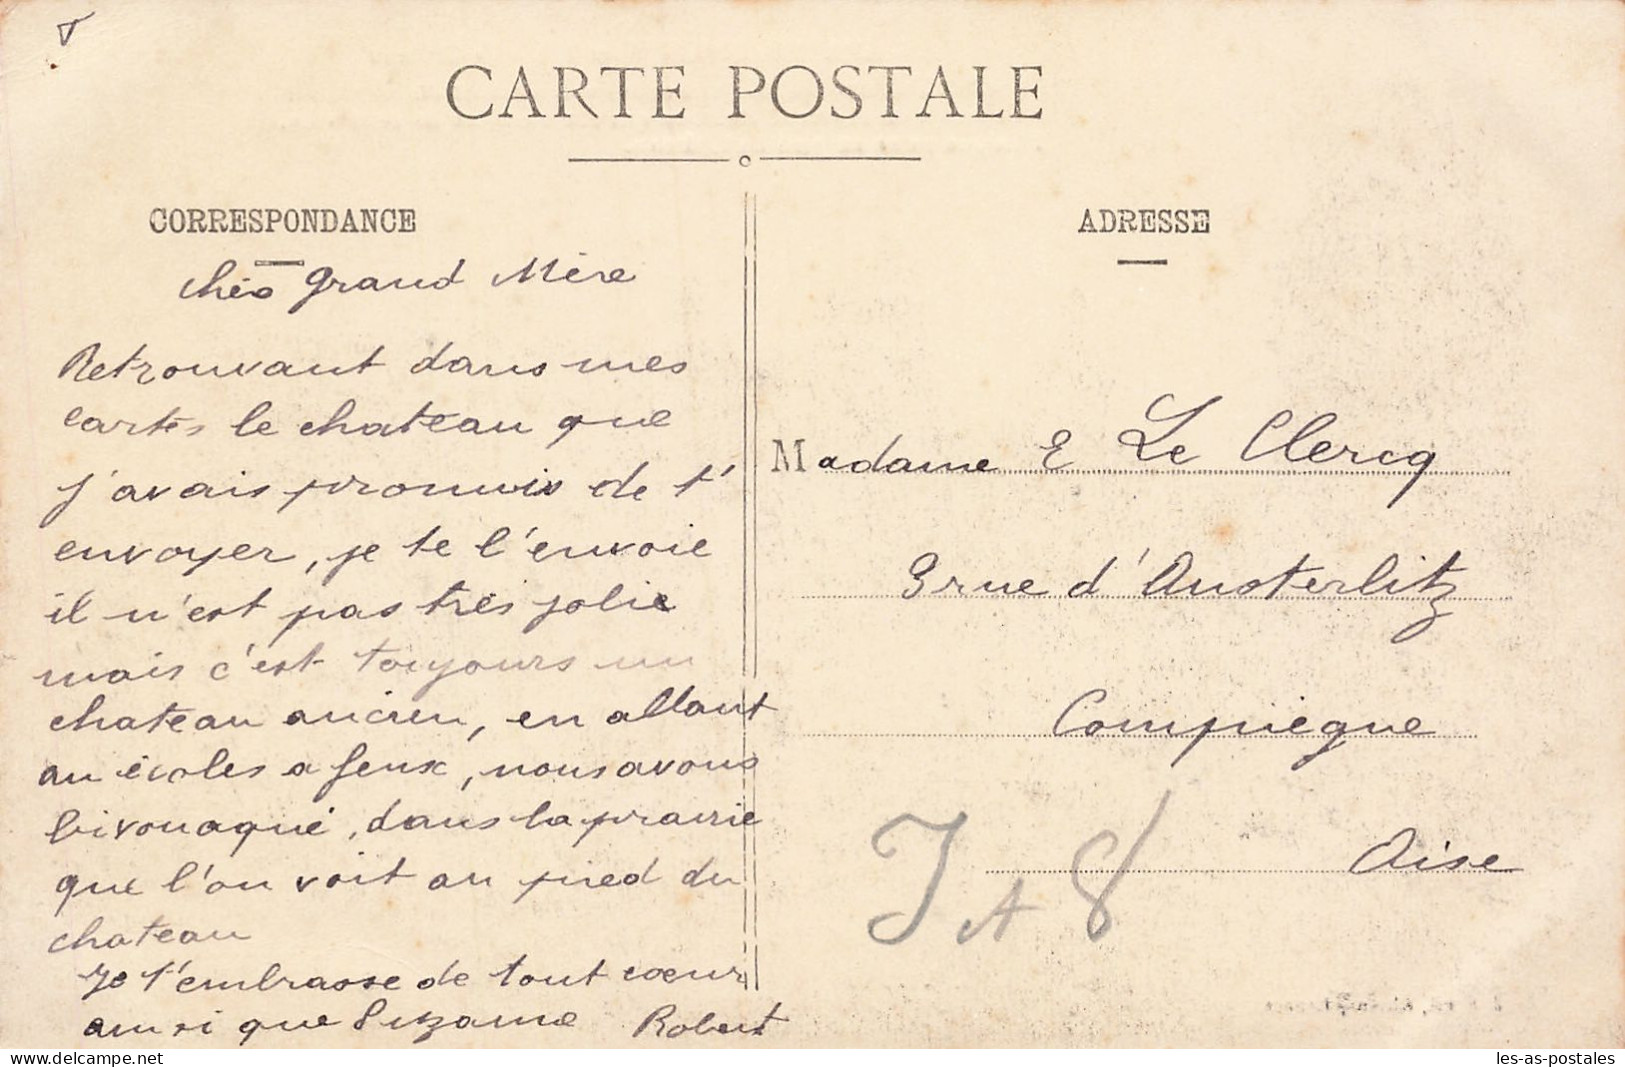 CARTE POSTALE
CORRESPONDANCE
ADRESSE
chère Grand Mère
Retrouvant dans mes
cartes le chateau que
j'avais promis de t'
envoyer, je te l'envoie
il n'est pas très jolie
mais c'est toujours un
chateau ancien, en allant
au écoles a feux, nous avons
bivouaqué, dans la prairie
que l'on voit au pied du
chateau
Je t'embrasse de tout coeur
ainsi que Suzanne Robert
Madame E Le Clercq
3 rue d'Austerlitz
Compiegne
Oise
J A 8
les-as-postales